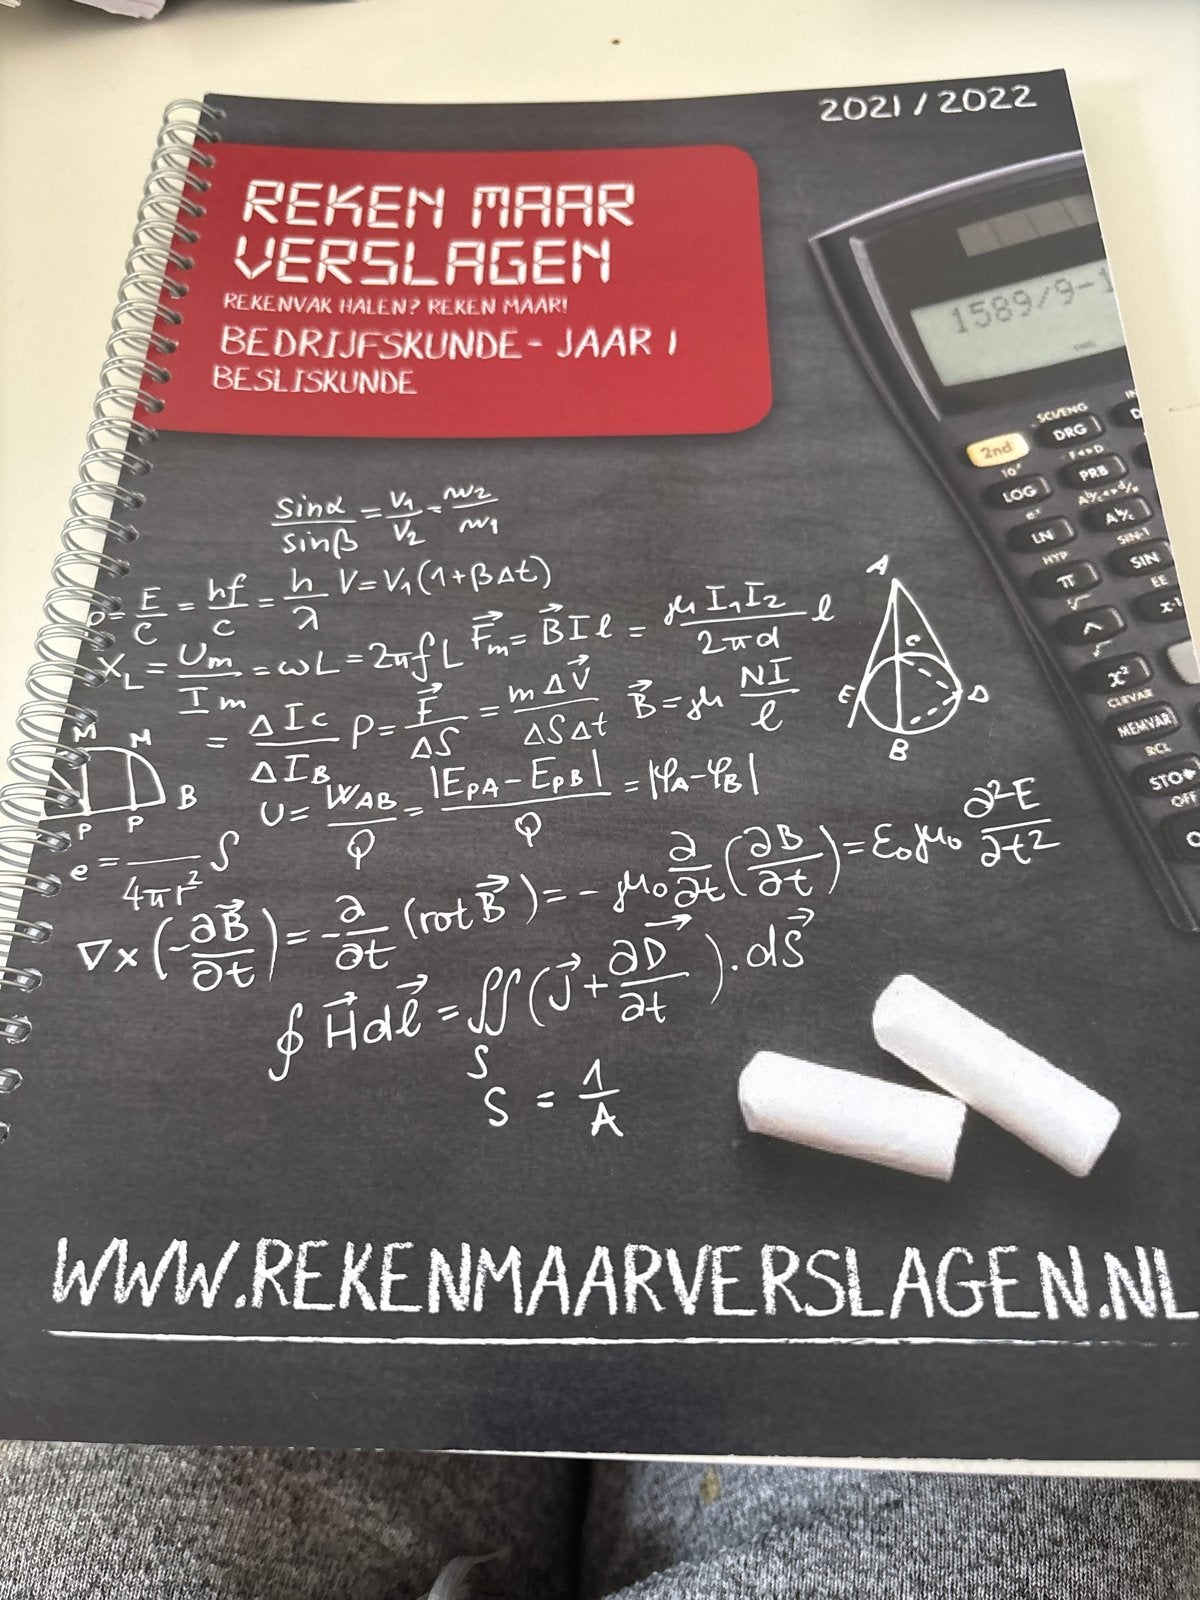 2021/2022
REKEN MAAR
VERSLAGEN
REKENVAK HALEN? REKEN MAAR!
BEDRIJFSKUNDE - JAAR 1
BESLISKUNDE
1589/9-1
SCI/ENG
2nd DRG
10ˣ F◂▸D
LOG PRB
eˣ Aᵇ/c◂▸d/e
LN Aᵇ/c
HYP SIN-1
π SIN
EE
^ x-1
√
x²
CLRVAR
MEMVAR
RCL
STO▸
OFF
sinα/sinβ = V₁/V₂ = n₂/n₁
= E/c = hf/c = h/λ V=V₁(1+βΔt)
X_L = Um/Im = ωL = 2πfL F⃗m = B⃗Iℓ = μI₁I₂/2πd ℓ
= ΔIc/ΔI_B p = F⃗/ΔS = mΔV⃗/ΔSΔt B⃗ = μ NI/ℓ
A
C
E D
B
M M
B
P P
U = W_AB/Q = |E_PA - E_PB|/Q = |φ_A - φ_B|
e = /4πr² S
∇×(-∂B⃗/∂t) = -∂/∂t (rot B⃗) = -μ₀ ∂/∂t (∂B/∂t) = ε₀μ₀ ∂²E/∂t²
∮ H⃗dℓ⃗ = ∬_S (J⃗ + ∂D⃗/∂t) . dS⃗
S = 1/A
WWW.REKENMAARVERSLAGEN.NL